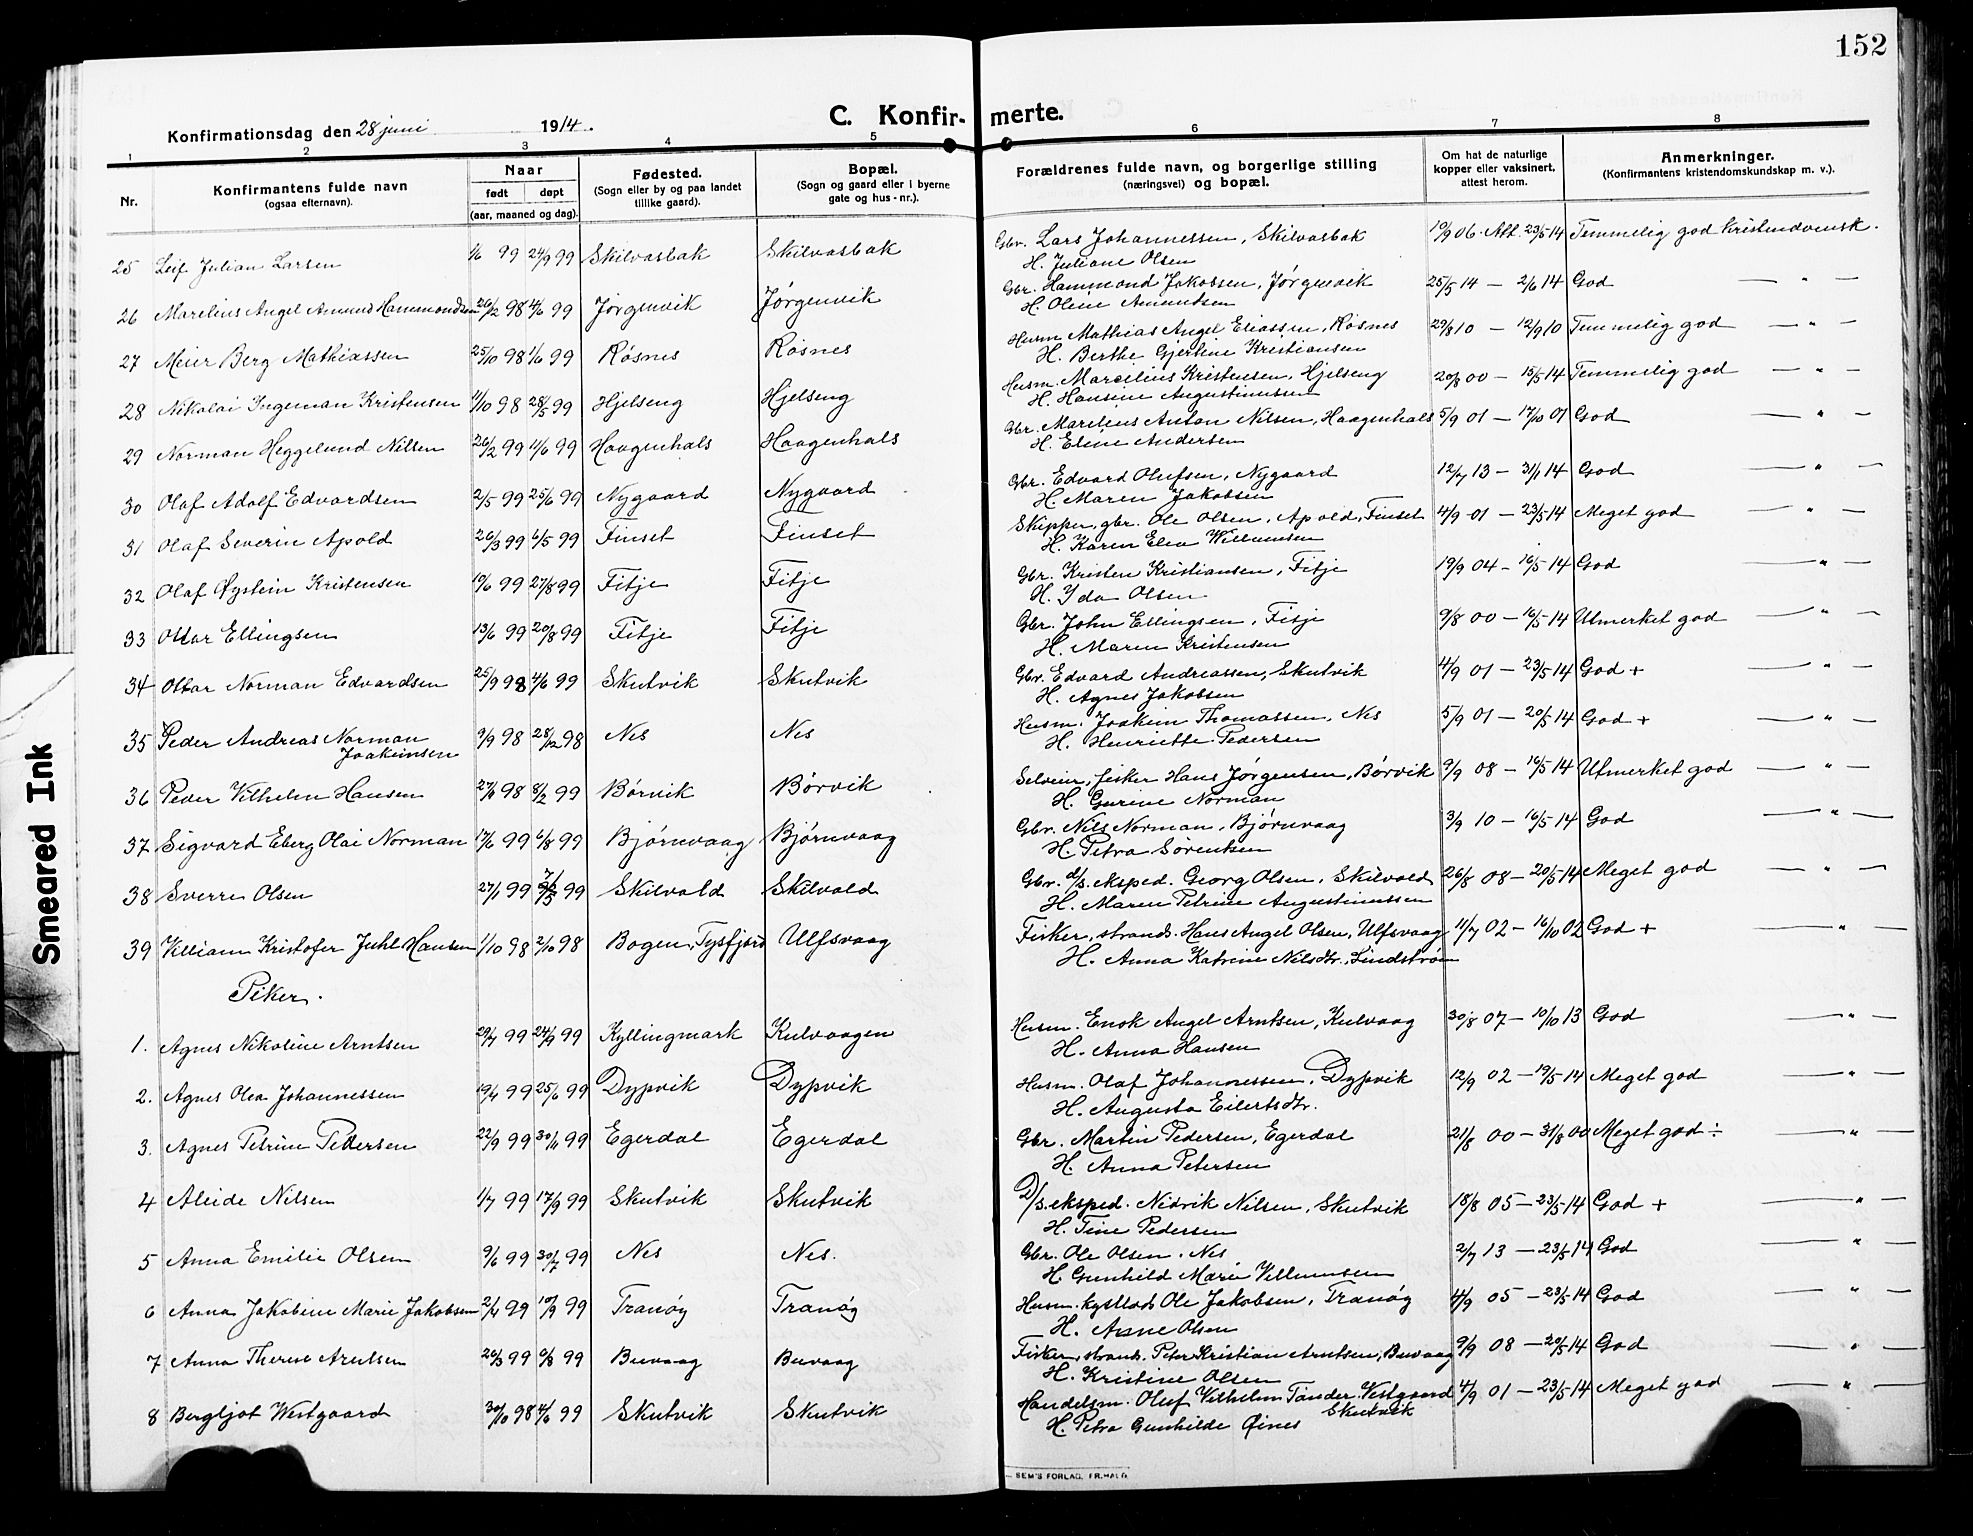 152
C. Konfirmerte.
Konfirmationsdag den 28 juni 1914.
1 2 3 4 5 6 7 8
Nr.
Konfirmantens fulde navn
(ogsaa efternavn).
Naar
født døpt
(aar, maaned og dag).
Fødested.
(Sogn eller by og paa landet
tillike gaard).
Bopæl.
(Sogn og gaard eller i byerne
gate og hus-nr.).
Forældrenes fulde navn, og borgerlige stilling
(næringsvei) og bopæl.
Om hat de naturlige
kopper eller vaksinert,
attest herom.
Anmerkninger.
(Konfirmantens kristendomskundskap m. v.).
25 Leif Julian Larsen 1/6 99 24/9 99 Skilvasbak Skilvasbak Gbr. Lars Johannessen, Skilvasbak 10/9 06. Att. 23/5 14 Temmelig god kristendomsk.
H. Juliane Olsen
26 Marelius Angel Amund Hammondsen 26/12 98 4/6 99 Jørgenvik Jørgenvik Gbr. Hammond Jakobsen, Jørgenvik 25/5 14 — 2/6 14 God — " —
H. Oline Amundsen
27 Meier Berg Mathiassen 25/10 98 1/6 99 Røsnes Røsnes Husm. Mathias Angel Eliassen, Røsnes 29/8 10 — 12/9 10 Temmelig god — " —
H. Berthe Gjertine Kristiansen
28 Nikolai Ingeman Kristensen 1/10 98 28/5 99 Hjelseng Hjelseng Husm. Marcelius Kristensen, Hjelseng 20/8 00 — 15/5 14 Temmelig god — " —
H. Hansine Augustinussen
29 Norman Heggelund Nilsen 26/2 99 11/6 99 Haagenhals Haagenhals Gbr. Marelius Anton Nilsen, Haagenhals 5/9 01 — 17/10 01 God — " —
H. Eline Andersen
30 Olaf Adolf Edvardsen 2/5 99 25/6 99 Nygaard Nygaard Gbr. Edvard Olufsen, Nygaard 12/7 13 — 31/1 14 God — " —
H. Maren Jakobsen
31 Olaf Severin Apold 26/3 99 6/5 99 Finset Finset Skipper, gbr. Ole Olsen, Apold, Finset 4/9 01 — 23/5 14 Meget god — " —
H. Karen Elea Willumsen
32 Olaf Øystein Kristensen 19/6 99 27/8 99 Fitje Fitje Gbr. Kristen Kristiansen, Fitje 19/9 04 — 16/5 14 God — " —
H. Ida Olsen
33 Ottar Ellingsen 13/6 99 20/8 99 Fitje Fitje Gbr. John Ellingsen, Fitje 9/8 00 — 16/5 14 Utmerket god — " —
H. Maren Kristensen
34 Ottar Norman Edvardsen 25/9 98 4/6 99 Skutvik Skutvik Gbr. Edvard Andreassen, Skutvik 4/9 01 — 23/5 14 God + — " —
H. Agnes Jakobsen
35 Peder Andreas Norman Joakimsen 9/9 98 28/12 98 Nes Nes Husm. Joakim Thomassen, Nes 5/9 01 — 20/5 14 God + — " —
H. Henriette Pedersen
36 Peder Vilhelm Hansen 98 8/2 99 Børvik Børvik Selveier, fisker Hans Jørgensen, Børvik 9/9 08 — 16/5 14 Utmerket god — " —
H. Gurine Norman
37 Sigvard Eberg Olai Norman 17/6 99 6/8 99 Bjørnvaag Bjørnvaag Gbr. Nils Norman, Bjørnvaag 3/9 10 — 16/5 14 God — " —
H. Petra Sørensen
38 Sverre Olsen 27/1 99 99 Skilvald Skilvald Gbr. d/s. eksped. Georg Olsen, Skilvold 26/8 08 — 20/5 14 Meget god — " —
H. Maren Petrine Augustinussen
39 Villiam Kristofer Juhl Hansen 1/10 98 2/10 98 Bogen, Tysfjord Ulfsvaag Fisker, strands. Hans Angel Olsen, Ulfsvaag 11/7 02 — 16/10 02 God + — " —
H. Anna Katrine Nilsdtr. Lindstrøm
Piker.
1. Agnes Nikoline Arntsen 29/7 99 24/9 99 Kyllingmark Kulvaagen Husm. Enok Angel Arntsen, Kulvaag 30/8 07 — 10/10 13 God — " —
H. Anna Hansen
2. Agnes Olea Johannessen 19/4 99 25/6 99 Dypvik Dypvik Husm. Olaf Johannessen, Dypvik 12/9 02 — 19/5 14 Meget god — " —
H. Augusta Eilertsdtr.
3. Agnes Petrine Pedersen 22/9 99 99 Egerdal Egerdal Gbr. Martin Pedersen, Egerdal 21/8 00 — 31/8 00 Meget god ÷ — " —
H. Anna Petersen
4 Aleide Nilsen 1/7 99 17/9 99 Skutvik Skutvik D/s. eksped. Nidrik Nilsen, Skutvik 18/8 05 — 23/5 14 God + — " —
H. Tine Pedersen
5 Anna Emilie Olsen 9/6 99 30/7 99 Nes Nes. Gbr. Ole Olsen, Nes 2/7 13 — 23/5 14 God — " —
H. Gunhild Marie Villumsen
6 Anna Jakobine Marie Jakobsen 2/4 99 10/9 99 Tranøy Tranøy Husm. kystlods Ole Jakobsen, Tranøy 4/9 05 — 23/5 14 God — " —
H. Anne Olsen
7 Anna Therese Arntsen 20/3 99 6/8 99 Buvaag Buvaag Fisker, strands. Peter Kristian Arntsen, Buvaag 9/9 08 — 20/5 14 God — " —
H. Kristine Olsen
8 Bergljot Westgaard 30/10 98 4/6 99 Skutvik Skutvik Handelsm. Oluf Vilhelm Tønder Vestgaard 4/9 01 — 23/5 14 Meget god — " —
Skutvik
H. Petra Gunhilde Øines
SEM'S FORLAG, FR.HALD.
Smeared Ink